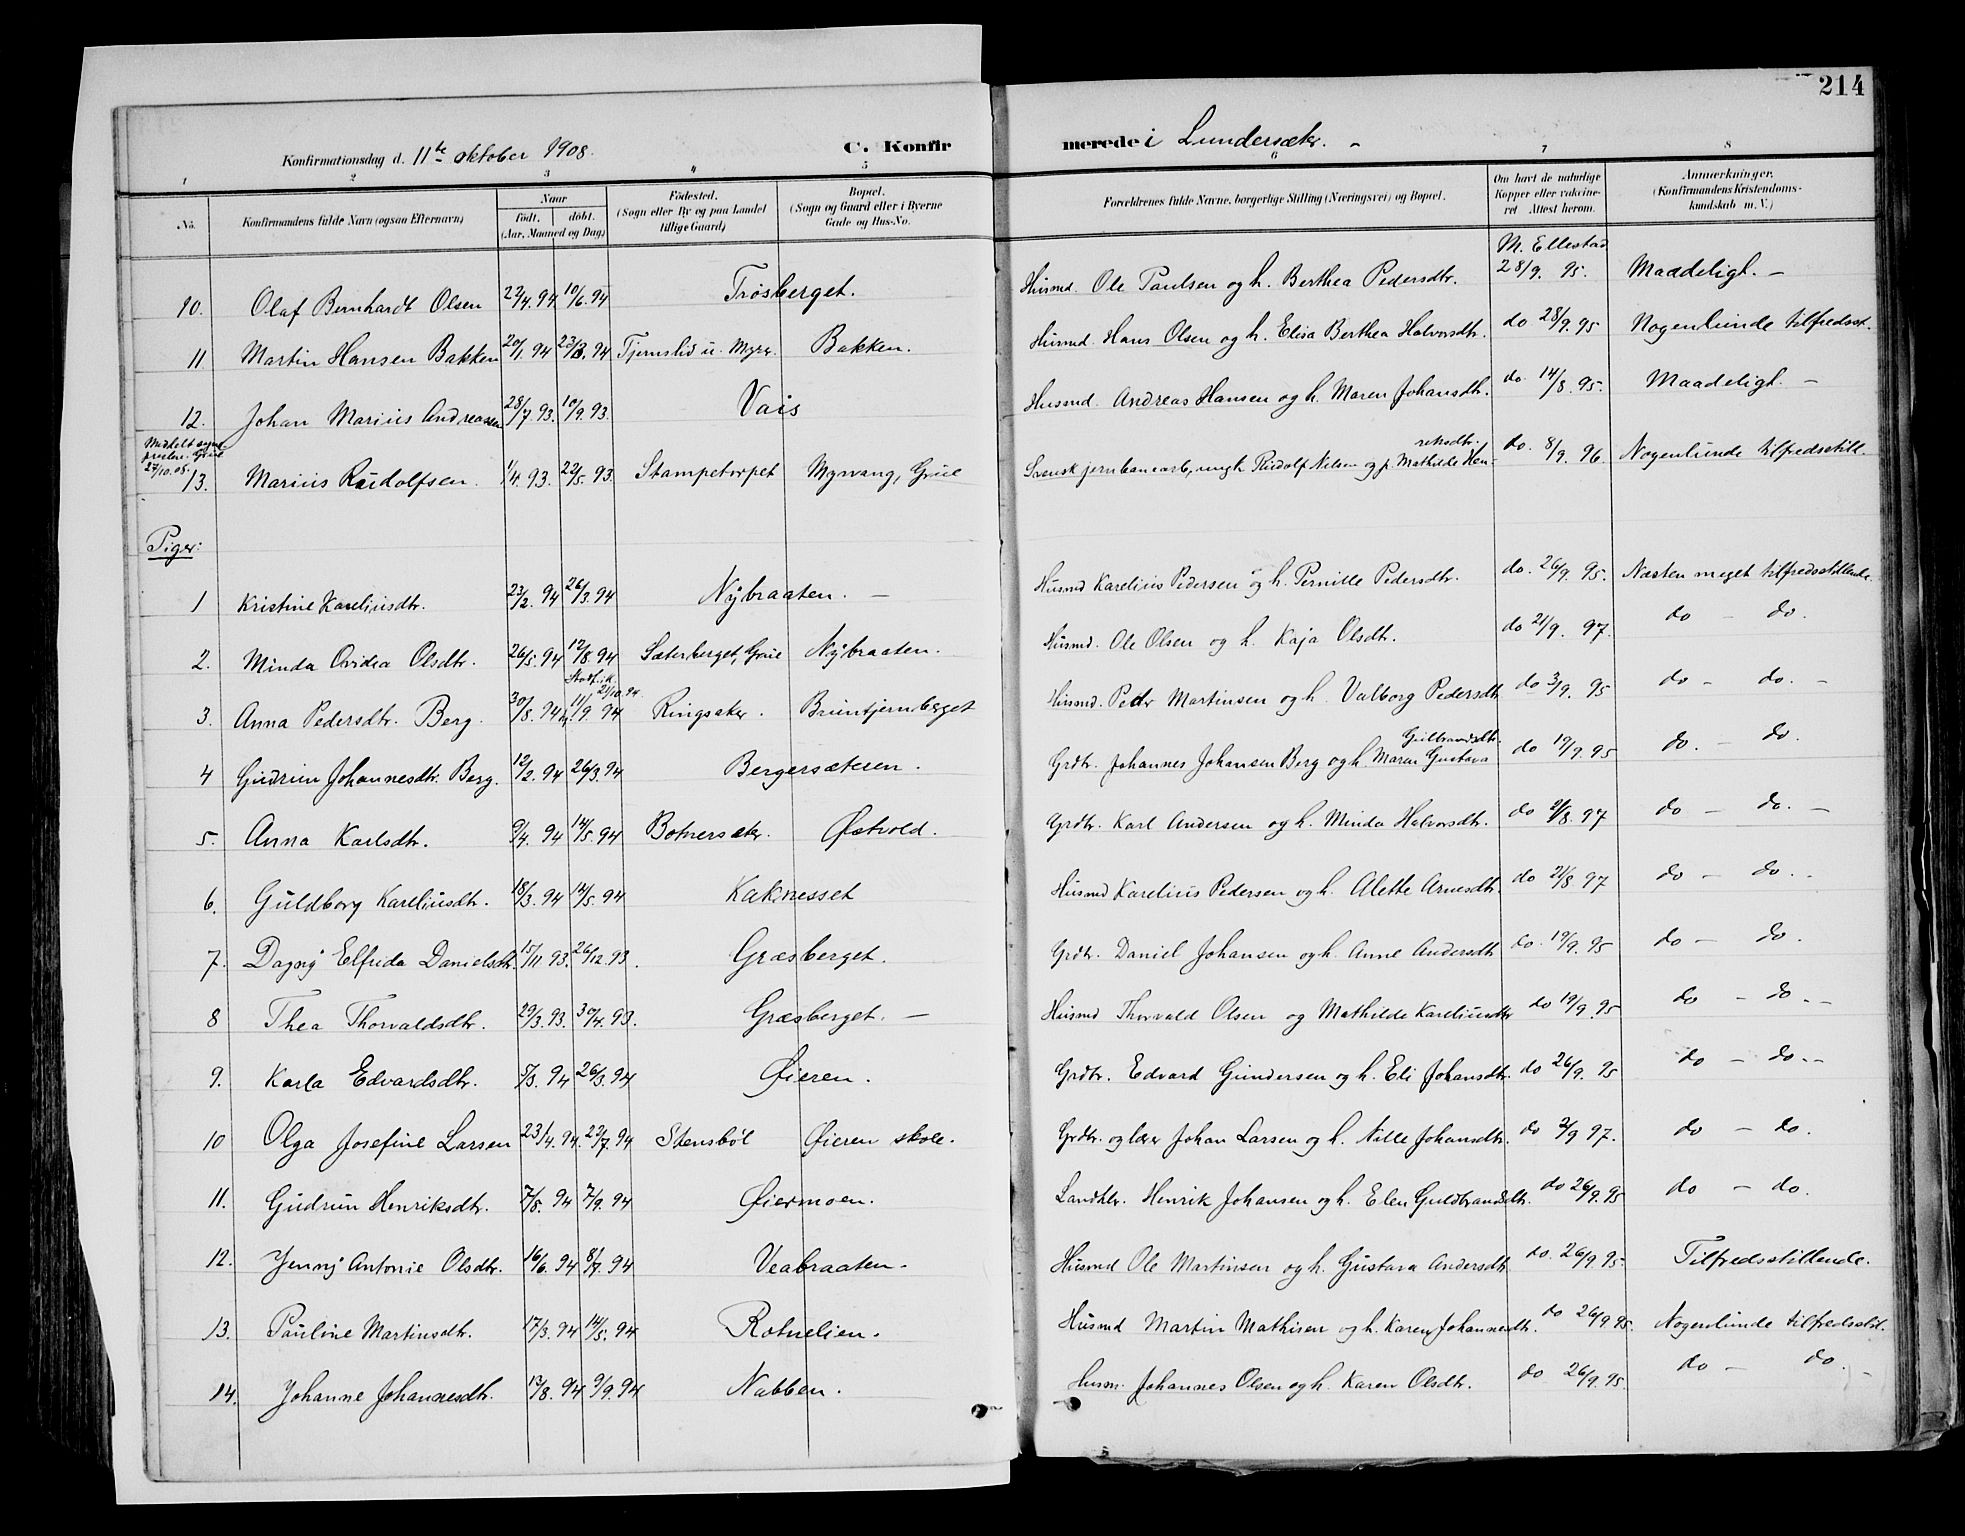 214
Konfirmationsdag d. 11te oktober 1908. C. Konfirmerede i Lundersæter.
1 2 3 4 5 6 7 8
No. Konfirmandens fulde Navn (ogsaa Efternavn) Naar født. døbt. (Aar, Maaned og Dag) Fødested. (Sogn eller By og paa Landet tillige Gaard) Bopæl. (Sogn og Gaard eller i Byerne Gade og Hus-No. Forældrenes fulde Navne, borgerlige Stilling (Næringsvei) og Bopæl. Om havt de naturlige Kopper eller vakcineret Attest herom. Anmærkninger. (Konfirmandens Kristendomskundskab m. V.)
10. Olaf Bernhardt Olsen 22/4. 94. 10/6. 94 Trösberget. Husmd. Ole Paulsen og h. Berthea Pedersdtr. M. Ellestad 28/9. 95. Maadeligt. –
11 Martin Hansen Bakken 20/1. 94 23/3. 94 Tjernslid u. Myrer. Bakken. Husmd. Hans Olsen og h. Elisa Berthea Halvorsdtr. do 28/9. 95 Nogenlunde tilfredsst.
12. Johan Marius Andreassen 28/7. 93. 10/9. 93. Vais Husmd. Andreas Hansen og h. Maren Johansdtr. do. 14/8. 95. Maadeligt. –
Meddelt sogneprestn. Grue 27/10. 08.
13. Marius Rudolfsen. 1/4. 93. 22/5. 93. Stampetorpet Myrvang, Grue Svensk jernbanearb, ungk. Rudolf Nilsen og p. Mathilde Henreksdtr. do. 8/9. 96. Nogenlunde tilfredsstill.
Piger:
1 Kristine Kareliusdtr. 23/2. 94 26/3. 94 Nybraaten. – Husmd Karelius Pedersen og h. Pernille Pedersdtr. do. 26/9. 95. Næsten meget tilfredsstillende.
2. Minda Ovidea Olsdtr. 26/5. 94 12/8. 94 Sæterberget, Grue Nybraaten. Husmd. Ole Olsen og h. Kaja Olsdtr. do 21/9. 97. do – do.
3. Anna Pedersdtr. Berg. 30/8. 94 11/9. 94 Stadf. i k. 21/10. 94. Ringsaker. Bruntjernberget Husmd. Peder Martinsen og h. Valborg Pedersdtr do 3/9. 95 do – do. –
4 Gudrun Johannesdtr. Berg. 12/2. 94 26/3. 94 Bergersæteren. Grdbr. Johannes Johansen Berg og h. Maren Gustava Gulbrandsdtr. do 19/9. 95 do. – do.
5. Anna Karlsdtr. 9/4. 94 14/5. 94 Botnersæter. Østvold. Grdbr. Karl Andersen og h. Minda Halvorsdtr. do 21/8. 97 do – do. –
6. Guldborg Kareliusdtr. 18/3. 94 14/5. 94 Kaknesset Husmd Karelius Pedersen og h. Alette Arnesdtr. do 21/8 97 do – do. -
7. Dagny Elfrida Danielsdtr. 15/11. 93. 26/12. 93. Græsberget. Grdbr. Daniel Johansen og h. Anne Andersdtr do. 19/9. 95 do – do.
8 Thea Thorvaldsdtr. 29/3. 93. 30/4. 93. Græsberget. – Husmd Thorvald Olsen og Mathilde Kareliusdtr do 19/9. 95 do – do. –
9. Karla Edvardsdtr. 5/3. 94 26/3. 94 Øieren. Grdbr. Edvard Gundersen og h. Eli Johansdtr. do 26/9. 95 do – do. –
10 Olga Josefine Larsen 23/4. 94. 22/7. 94 Stensböl Øieren skole. Grdbr. og lærer Johan Larsen og h. Nille Johansdtr. do 2/9 97. do – do.
11. Gudrun Henriksdtr. 7/5. 94 7/9. 94 Øiermoen. Landhlr. Henrik Johansen og h. Elen Guldbrandsdtr. do 26/9. 95 do – do.
12. Jenny Antonie Olsdtr. 16/6. 94 8/7. 94 Veabraaten. Husmd Ole Martinsen og h. Gustava Andersdtr do. 26/9 95. Tilfredsstillende.
13. Pauline Martinsdtr. 17/3. 94 14/5. 94 Rotnelien. Husmd Martin Mathisen og h. Karen Johannesdtr. do 26/9. 95. Nogenlunde tilfredsstil.
14. Johanne Johannesdtr. 13/8. 94 9/9. 94 Nabben. Husm. Johannes Olsen og h. Karen Olsdtr. do 26/9. 95. do – do. –